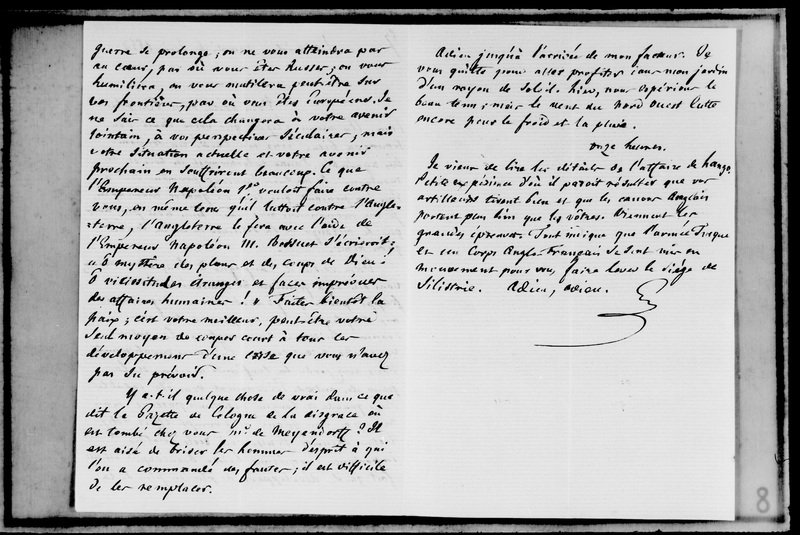 guerre se prolonge, on ne vous atteindra pas
au cœur, pas où vous êtes Russes; on vous
humiliera, on vous mutilera peut-être sur
vos frontières, pas où vous êtes Européens. Je
ne sais ce que cela changera à votre avenir
lointain, à vos perspectives séculaires; mais
votre situation actuelle et votre avenir
prochain en souffriront beaucoup. Ce que
l'Empereur Napoléon 1er vouloit faire contre
vous, en même tems qu'il luttoit contre l'Angle-
terre, l'Angleterre le fera avec l'aide de
l'Empereur Napoléon III. Bossuet s'écrieroit:
"O mystère des plans et des coups de Dieu!
O vicissitudes étranges et faces imprévues
des affaires humaines!" Faites bientôt la
paix; c'est votre meilleur, peut-être votre
seul moyen de couper court à tous les
développemens d'une crise que vous n'avez
pas su prévoir.
Y a-t-il quelque chose de vrai dans ce que
dit la Gazette de Cologne de la disgrace où
est tombé chez vous Mr. de Meyendorff? Il
est aisé de briser les hommes d'esprit à qui
l'on a commandé des fautes; il est difficile
de les remplacer.
Adieu jusqu'à l'arrivée de mon facteur. Je
vous quitte pour aller profiter dans mon jardin
d'un rayon de soleil. Hier, nous espérions le
beau tems; mais le vent du Nord Ouest lutte
encore pour le froid et la pluie.
onze heures.
Je viens de lire les détails de l'affaire de hango.
Petite expérience d'où il paroit résulter que vos
artilleurs tirent bien et que les canons Anglois
portent plus loin que les vôtres. Viennent les
grandes épreuves. Tout indique que l'armée Turque
et un Corps Anglo-Français se sont mis en
mouvement pour vous faire lever le siège de
Silistrie. Adieu, adieu.